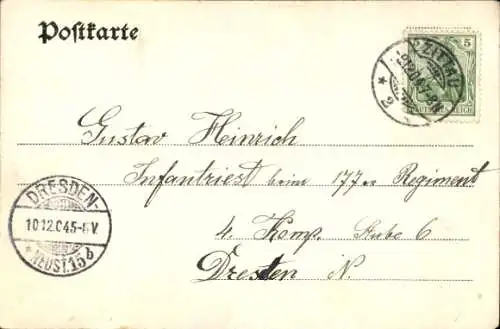 Postkarte
5
ZITTAU
9.12.04.7-8N.
* 2
Gustav Heinrich
Infantriest beim 177er Regiment
4. Komp. Stube 6
Dresten N.
DRESDEN-
10.12.04 5-6V
* NEUST. 15 b